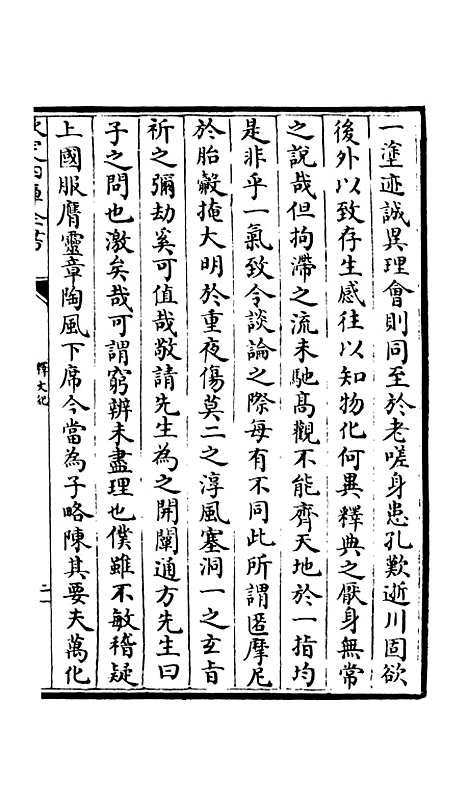 一塗迹誠異理會則同至於老嗟身患孔歎逝川固欲
後外以致存生感往以知物化何異釋典之厭身無常
之說哉但拘滯之流未馳高觀不能齊天地於一指均
是非乎一氣致令談論之際每有不同此所謂匿摩尼
於胎㲉掩大明於重夜傷莫二之淳風塞洞一之玄旨
祈之彌劫奚可值哉敬請先生為之開闡通方先生曰
子之問也激矣哉可謂窮辨未盡理也僕雖不敏稽疑
上國服膺靈章陶風下席今當為子略陳其要夫萬化
釋文化
二